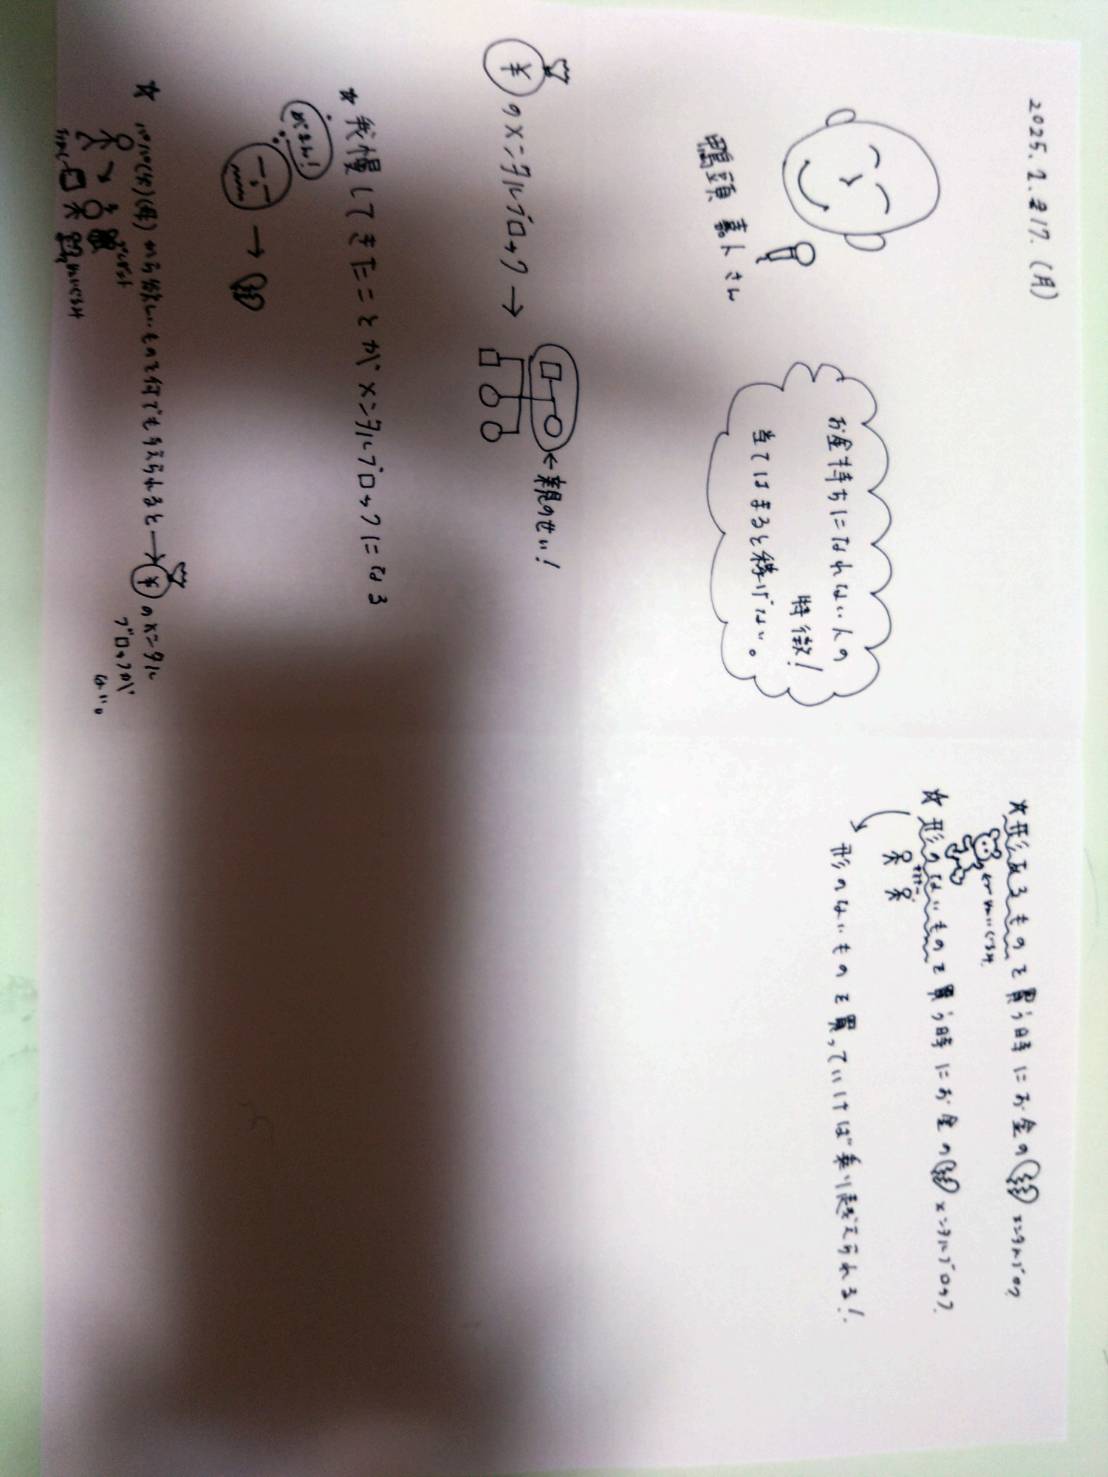 2025. 2. 17. (月)
鴨頭 嘉人さん
お金持ちになれない人の
特徴!
当てはまると稼げない。
¥ のメンタルブロック →
← 親のせい!
★ 我慢してきたことがメンタルブロックになる
がまん!
→
★ から欲しいもの何でも与えられると → ¥ のメンタル
ブロックが
ない。
★ 形あるものを買う時にお金の メンタルブロック
ぬいぐるみ
★ 形のないものを買う時にお金の メンタルブロック
形のないものを買っていけば乗り越えられる!